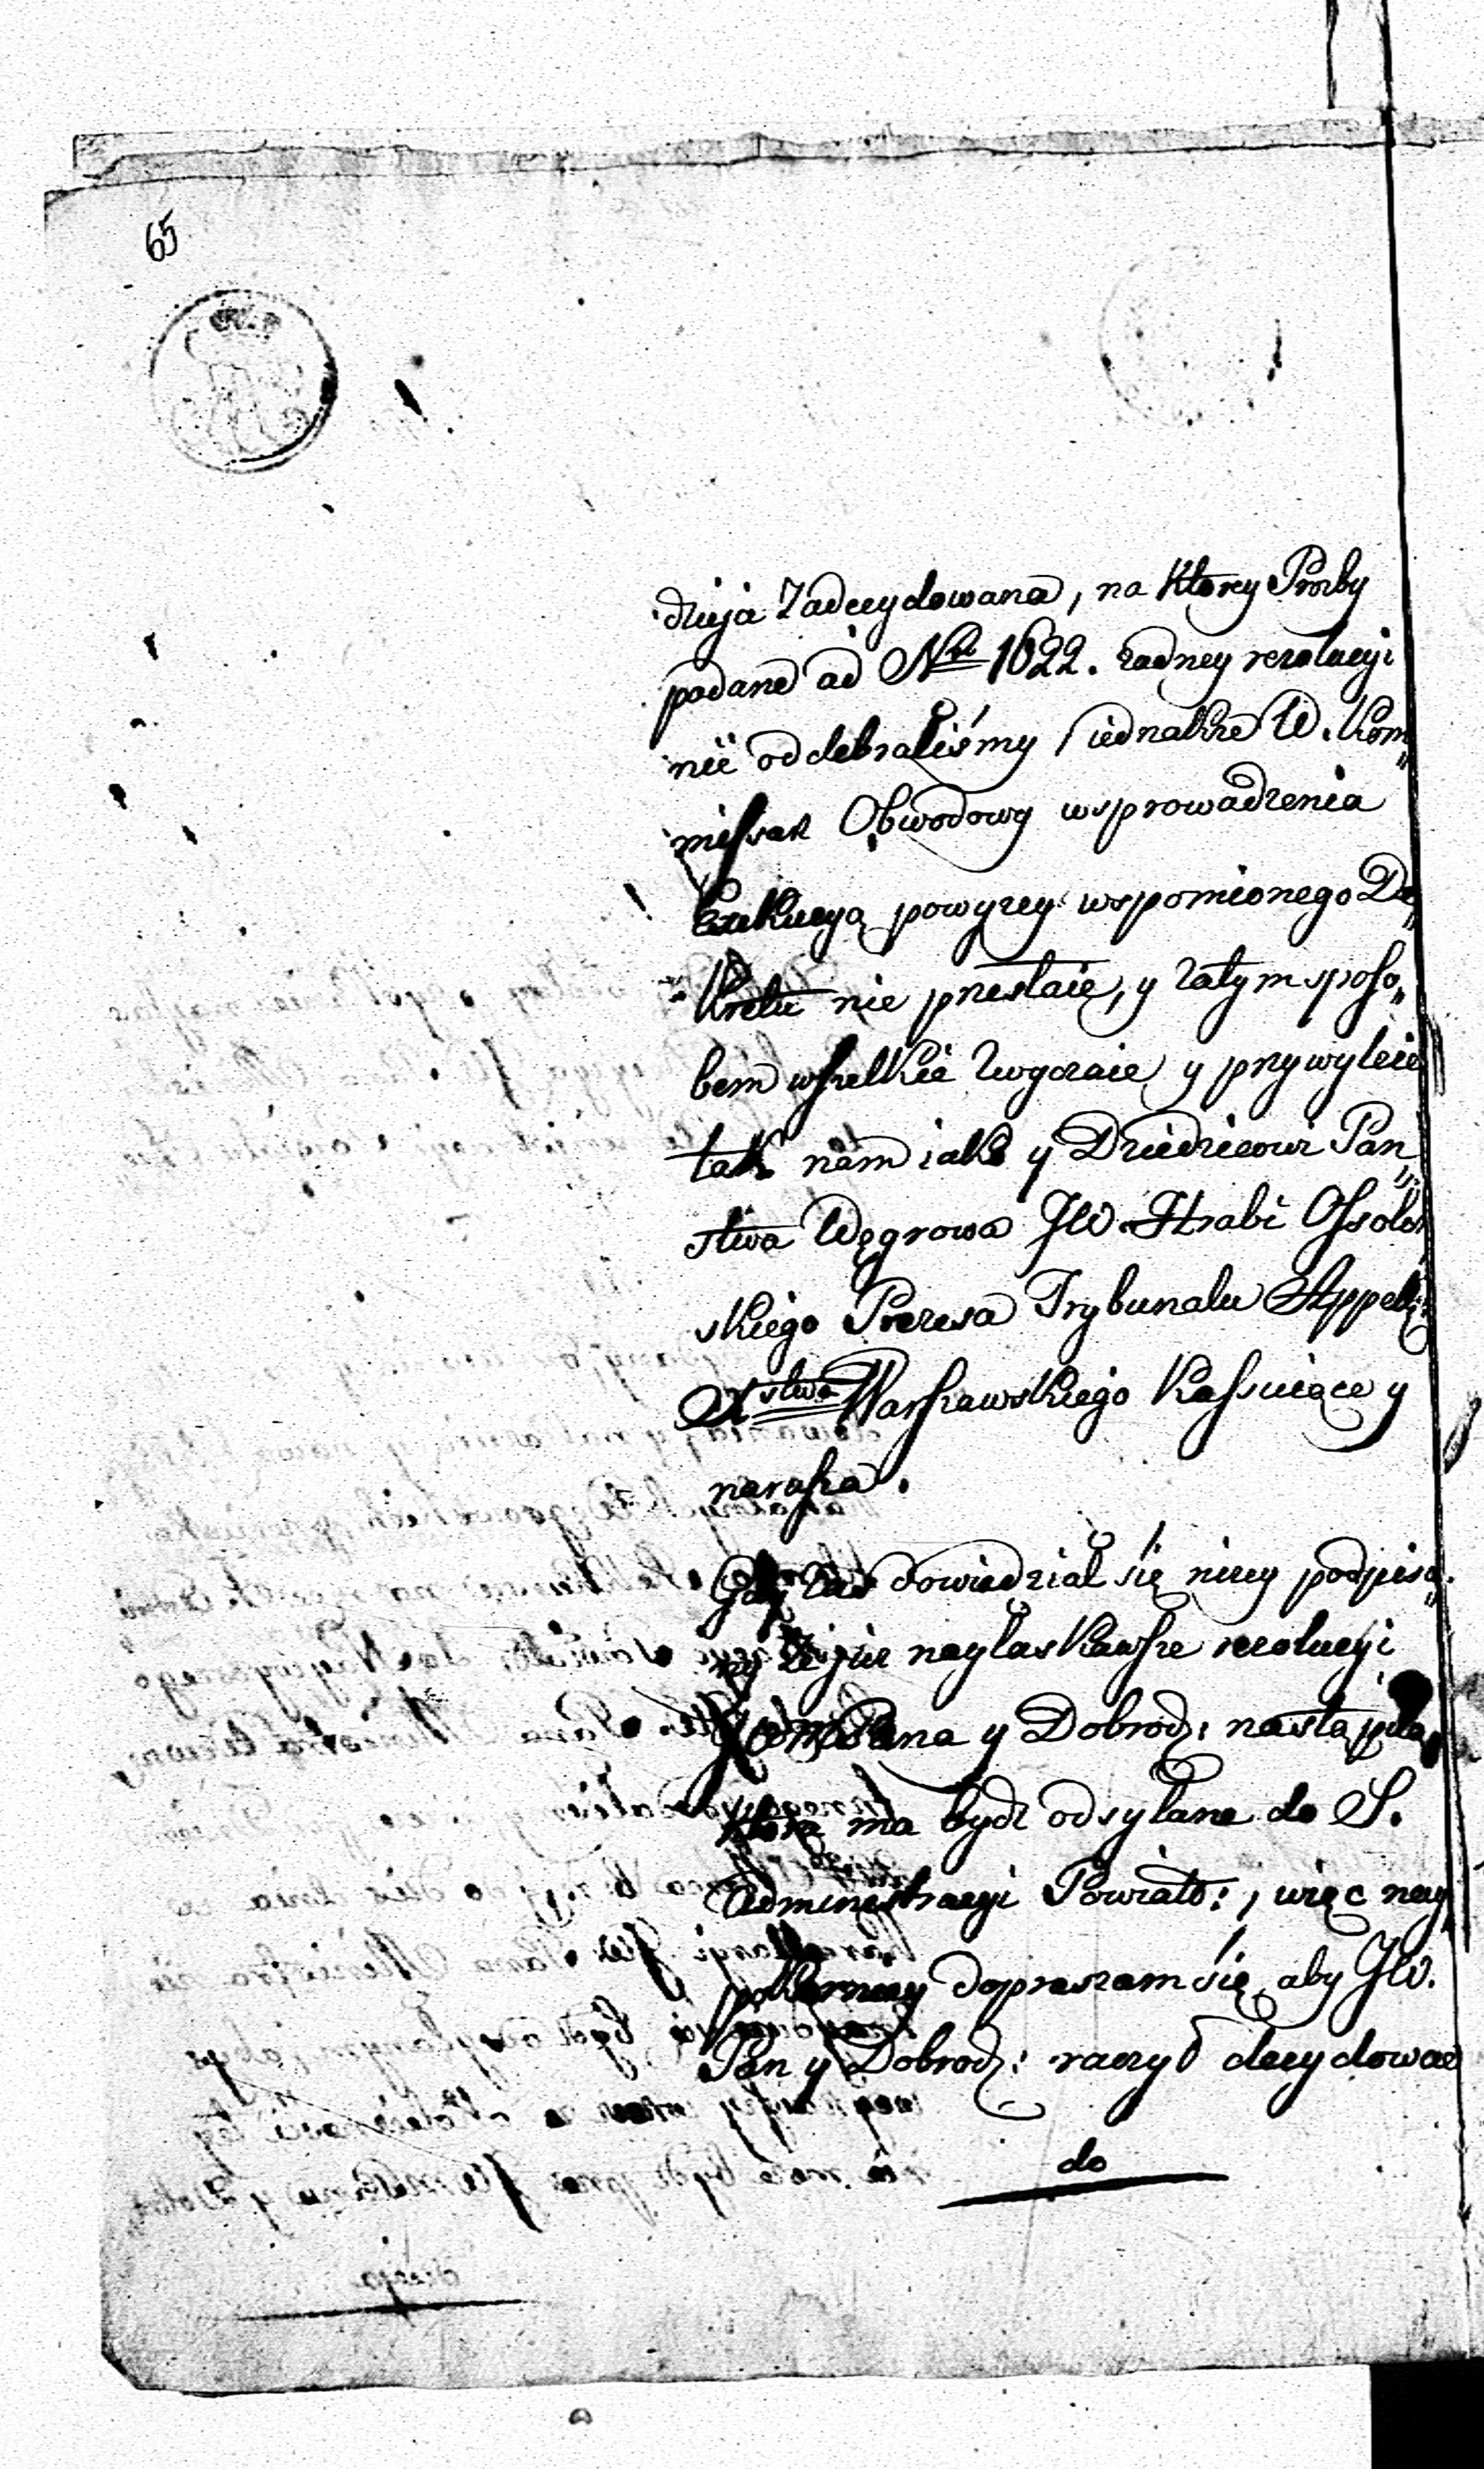 65
dzieja zadecydowana, na ktorey Prozby
podane ad N<sup>ri</sup> 1622. zadney rezolucyi
nie oddebraliśmy iednakże W. Kom„
missarz Obwodowy wsprowadzenia
Exekucyą powyzey wspomionego De„
kretu nie przestaie, y zatym sposo„
bem wszelkie zwyczaie y przywyleie
tak nam iako y Dziedzicowi Pan„
stwa Węgrowa JW. Hrabi Ossolin
skiego Prezesa Trybunalu Appell:
X<sup>stwa</sup> Warszawskiego kassuiące y
narusza.
Gdy zas dowiedział się nizey podpisa„
ny że iuż naylaskawsze rezolucyi
JWm Pana y Dobrodz: nastąpila,
ktora ma bydz odsylane do S.
Administracyi Powiato:, więc nay„
pokorniey dopraszam się aby JW.
Pan y Dobrodz: raczył decydowac
do